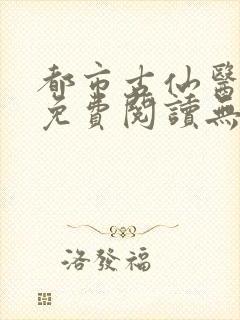 都市古仙醫
免費閱讀無
洛發福